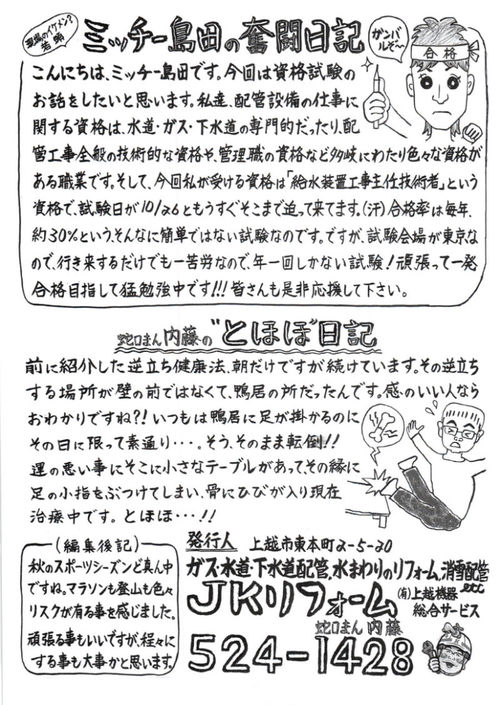 現場のイケメン?
ミッチー島田の奮闘日記
ガンバルぞ~
合格
こんにちは、ミッチー島田です。今回は資格試験の
お話をしたいと思います。私達、配管設備の仕事に
関する資格は、水道・ガス・下水道の専門的だったり、配
管工事全般の技術的な資格や、管理職の資格など多岐にわたり色々な資格が
ある職業です。そして、今回私が受ける資格は「給水装置工事主任技術者」という
資格で、試験日が10/26ともうすぐそこまで迫って来てます。(汗)合格率は毎年、
約30%という、そんなに簡単ではない試験なのです。ですが、試験会場が東京な
ので、行き来するだけでも一苦労なので、年一回しかない試験!頑張って一発
合格目指して猛勉強中です!!!皆さんも是非応援して下さい。
蛇口まん内藤の"とほほ"日記
前に紹介した逆立ち健康法、朝だけですが続けています。その逆立ち
する場所が壁の前ではなくて、鴨居の所だったんです。感のいい人なら
おわかりですね?!いつもは鴨居に足が掛かるのに
その日に限って素通り・・・。そう、そのまま転倒!!
運の悪い事にそこに小さなテーブルがあってその縁に
足の小指をぶつけてしまい、骨にひびが入り現在
治療中です。とほほ・・・!!
(編集後記)
秋のスポーツシーズンど真ん中
ですね。マラソンも登山も色々
リスクが有る事を感じました。
頑張る事もいいですが、程々に
する事も大事かと思います。
発行人 上越市東本町2-5-20
ガス・水道・下水道配管、水まわりのリフォーム、消雪配管etc
JKリフォーム (有)上越機器総合サービス
蛇口まん内藤
524-1428